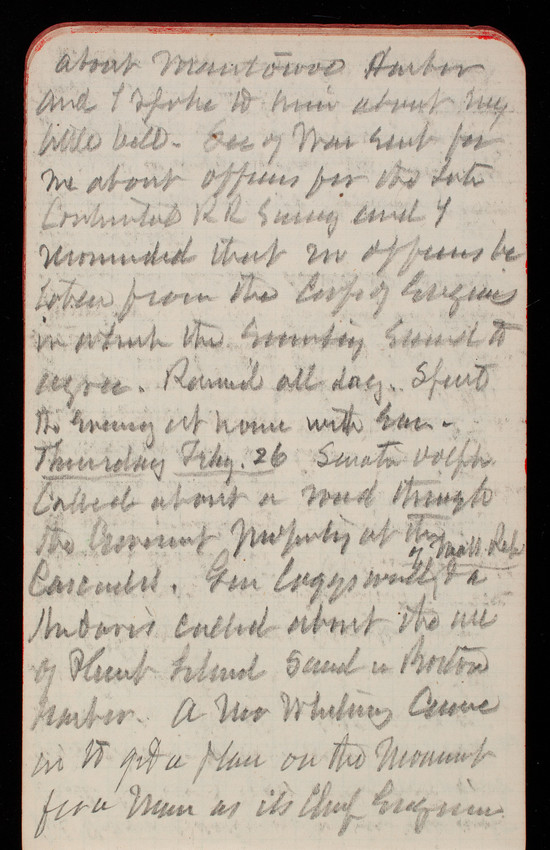 about Manitowoc Harbor
and I spoke to him about my
little bill. Sec of War sent for
me about officers for the Inter
Continental RR Survey and I
recommended that no officers be
taken from the Corps of Engineers
in which the Secretary seemed to
agree. Rained all day. Spent
the evening at home with
Thursday Feby. 26 Senator Dolph
Called about a road through
the Government property at the
Cascades. Gen Coggswell, of Mass. Rep & a
Mr Davis called about the use
of Plum Island Sand in Boston
Harbor. A Mr Whiting Came
in to get a place on the Monument
for a Man as its Chief Engineer